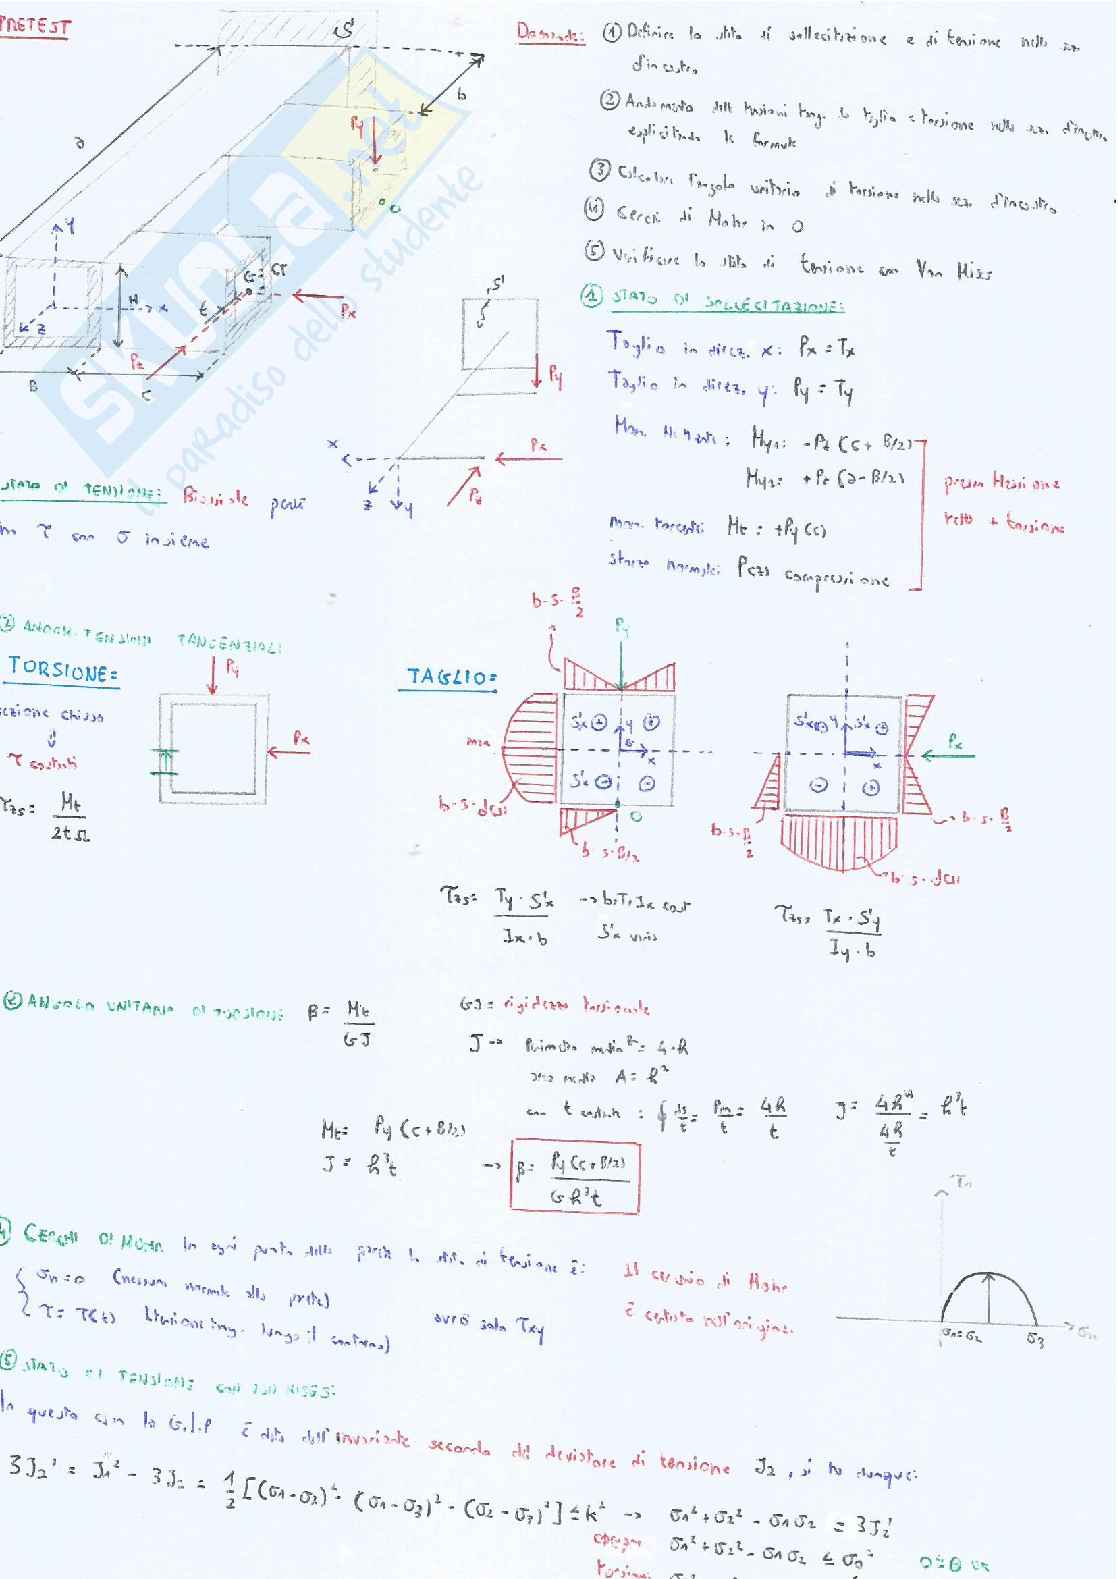 PRETEST
S'
a
b
Py
O
y
H
G≡CT
t
x
z
Px
Pz
B
c
SKUOLA.net
il paradiso dello studente
Domande: ① Definire lo stato di sollecitazione e di tensione nella sez
d'incastro
② Andamento delle tensioni tang. da taglio e torsione nella sez. d'incastro
esplicitando le formule
③ Calcolare l'angolo unitario di torsione nella sez. d'incastro
④ Cerchi di Mohr in O
⑤ Verificare lo stato di tensione con Von Mises
① STATO DI SOLLECITAZIONE:
Taglio in direz. x: Px = Tx
Taglio in direz. y: Py = Ty
My1: -Pz (c + B/2)
My2: +Px (a - B/2)
presso flessione
retta + torsione
mom. torcente: Mt: +Py(c)
sforzo normale: P(z) compressione
S'
Py
x
Px
z
y
Pz
STATO DI TENSIONE: Biassiale perché
τ con σ insieme
② ANDAM. TENSIONI TANGENZIALI
TORSIONE:
Py
Px
sezione chiusa
τ costanti
τzs = Mt / 2tΩ
TAGLIO:
b·s·B/2
Py
S'x ⊕ y ⊕
max
G x
S'x ⊖ ⊖
b·s·dsi
O
b·s·B/2
τzs = Ty · S'x / Ix · b → b, T, Ix cost
S'x varia
S'x ⊕ y S'x ⊕
Px
x
⊖ ⊕
b·s·B/2
b·s·B/2
b·s·dsi
τzs = Tx · S'y / Iy · b
③ ANGOLO UNITARIO DI TORSIONE β = Mt / GJ
GJ = rigidezza torsionale
J → Perimetro medio = 4·h
area media A = h²
con t costante: ∮ ds/t = Pm/t = 4h/t
J = 4h⁴ / 4h/t = h³t
Mt = Py (c + B/2)
J = h³t → β = Py (c+B/2) / G h³t
④ CERCHI DI MOHR In ogni punto della parete lo stato di tensione è:
σn = 0 (nessuna normale alla parete)
τ = τ(t) (tensione tang. lungo il contorno)
ovvero solo τxy
Il cerchio di Mohr
è centrato nell'origine.
τn
σ1=σ2
σ3
σn
⑤ STATO DI TENSIONE CON VON MISES:
In questo caso la è data dall'invariante secondo del deviatore di tensione J2, si ha dunque:
3J2' = J1² - 3J2 = 1/2 [(σ1-σ2)² - (σ1-σ3)² - (σ2-σ3)²] ≤ k² → σ1² + σ2² - σ1σ2 = 3J2'
σ1² + σ2² - σ1σ2 ≤ σ0²